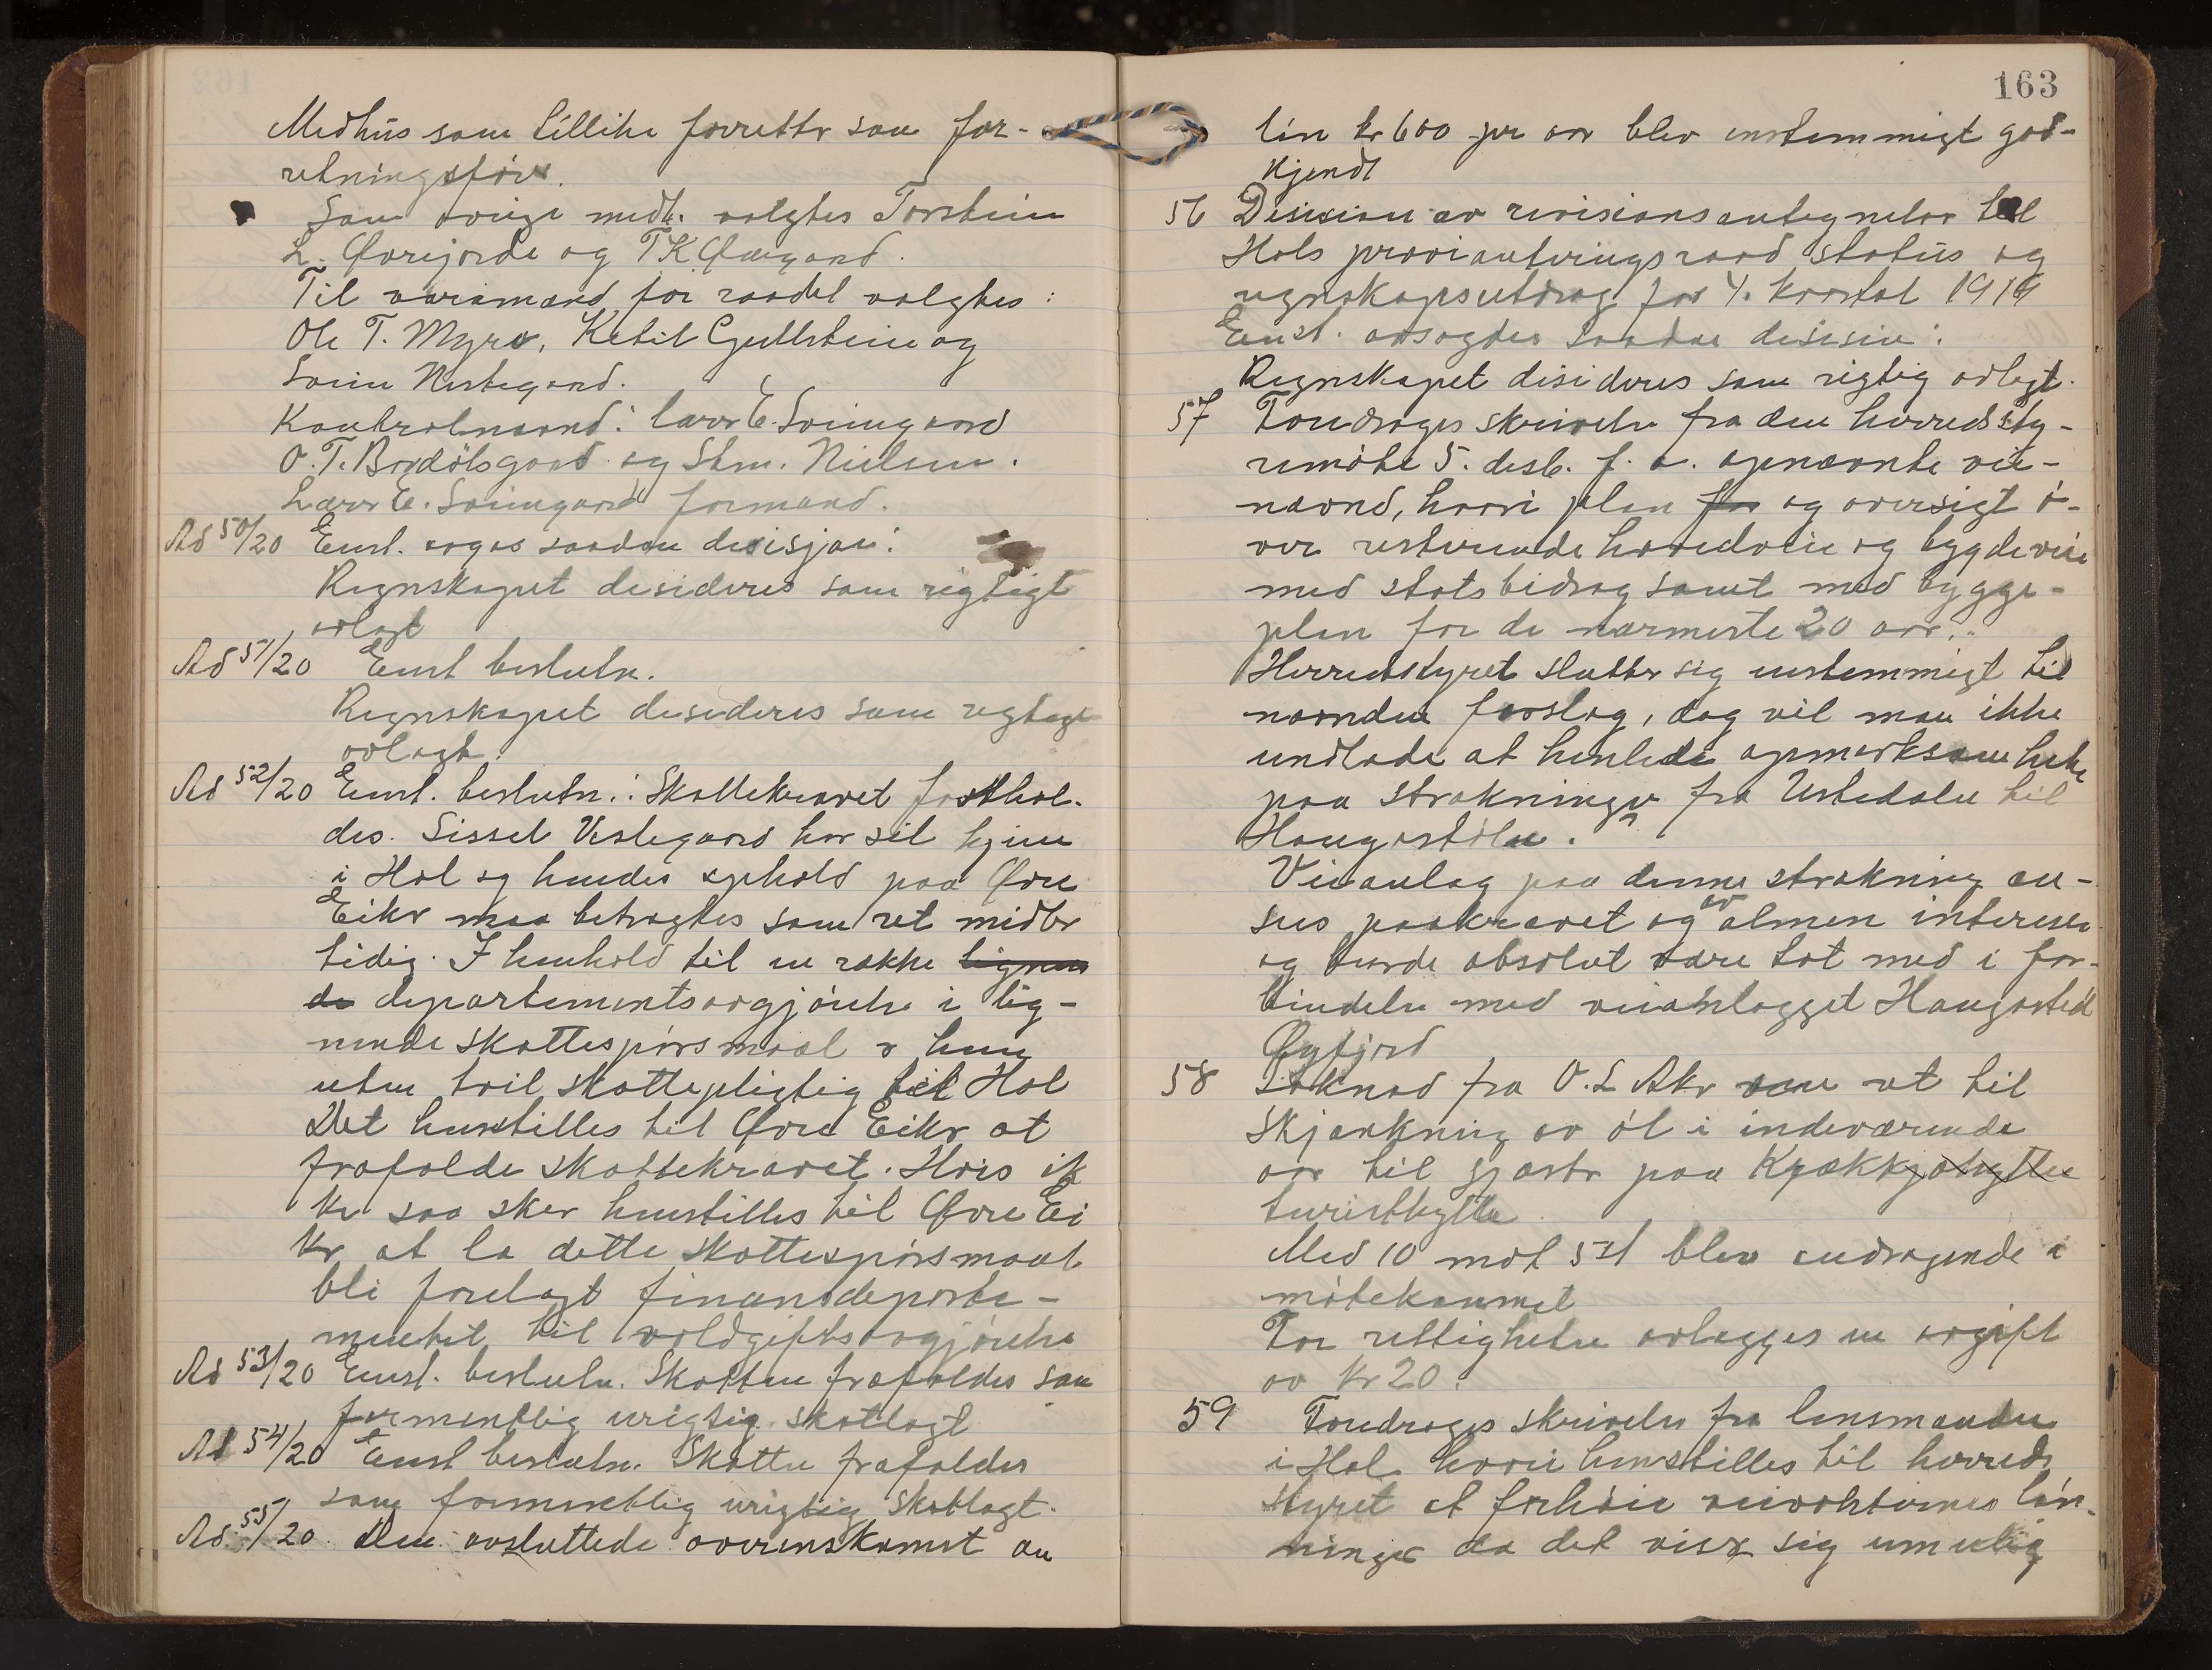 Medhus som tillike forretter som for-
retningsfører.
Som øvrige medl. valgtes Torstein
L. Øvrejorde og T K Øvregaard.
Til varamænd for raadet valgtes:
Ole T. Myro, Ketil Gullstein og
Svein Nestegaard.
Kontrolnævnd: Lars E. Sveingaard
O. T. Brødølsgaard og Stm. Nielsen.
Lars E. Sveingaard formand.
Ad 50/20 Enst. avgas saadan desisjon:
Regnskapet desideres som rigtigt
avlagt
Ad 51/20 Enst beslutn.
Regnskapet desideres som rigtigt
avlagt.
Ad 52/20 Enst. beslutn.: Skattekravet fasthol-
des. Sissel Vestegaard har sit hjem
i Hol og hendes ophold paa Øvre
Eiker maa betragtes som ret midler
tidig. I henhold til en række lignen
de departementsavgjørelse i lig-
nende skattespørsmaal er hun
uten tvil skattepligtig til Hol
Det henstilles til Øvre Eiker at
frafalde skattekravet. Hvis ik
ke saa sker henstilles til Øvre Ei
ker at la dette skattespørsmaal
bli forelagt finansdeparte-
mentet til voldgiftsavgjørelse
Ad 53/20 Enst. beslutn. Skatten frafaldes som
formentlig urigtig skatlagt
Ad 54/20 Enst beslutn. Skatten frafaldes
som formentlig urigtig skatlagt.
Ad. 55/20. Den avsluttede overenskomst an
163
len kr 600 pr aar blev enstemmigt god-
kjendt
56 Desision av revisionsantegnelser til
Hols provianteringsraad status og
regnskapsutdrag for 4. kvartal 1919
Enst. avsagdes saadan desision:
Regnskapet desideres som rigtig avlagt.
57 Foredrages skrivelse fra den herredssty-
remøte 5. desb. f. a. opnævnte vei-
nævnd, hvori plan for og oversigt o-
ver resterende hovedveie og bygdeveie
med statsbidrag samt med bygge-
plan for de nærmeste 20 aar.
Herredstyret slutter sig enstemmigt til
nævndens forslag, dog vil man ikke
undlade at henlede opmerksomheten
paa strækningen fra Ustedalen til
Haugastølen.
Veianlæg paa denne strækning an-
sees paakrævet og av almen interesse
og burde absolut være tat med i for-
bindelse med veianlægget Haugastøl
Øyfjord
58 Søknad fra O. L Aker om ret til
skjænkning av øl i indeværende
aar til gjæster paa Krækkjahytten
turisthytte
Med 10 mot 5 st blev andragende i
møtekommet
For rettigheten avlægges en avgift
av kr 20.
59 Foredrages skrivelse fra lensmanden
i Hol hvori henstilles til herreds
styret at forhøie veivokternes løn-
ninger da det viser sig umulig